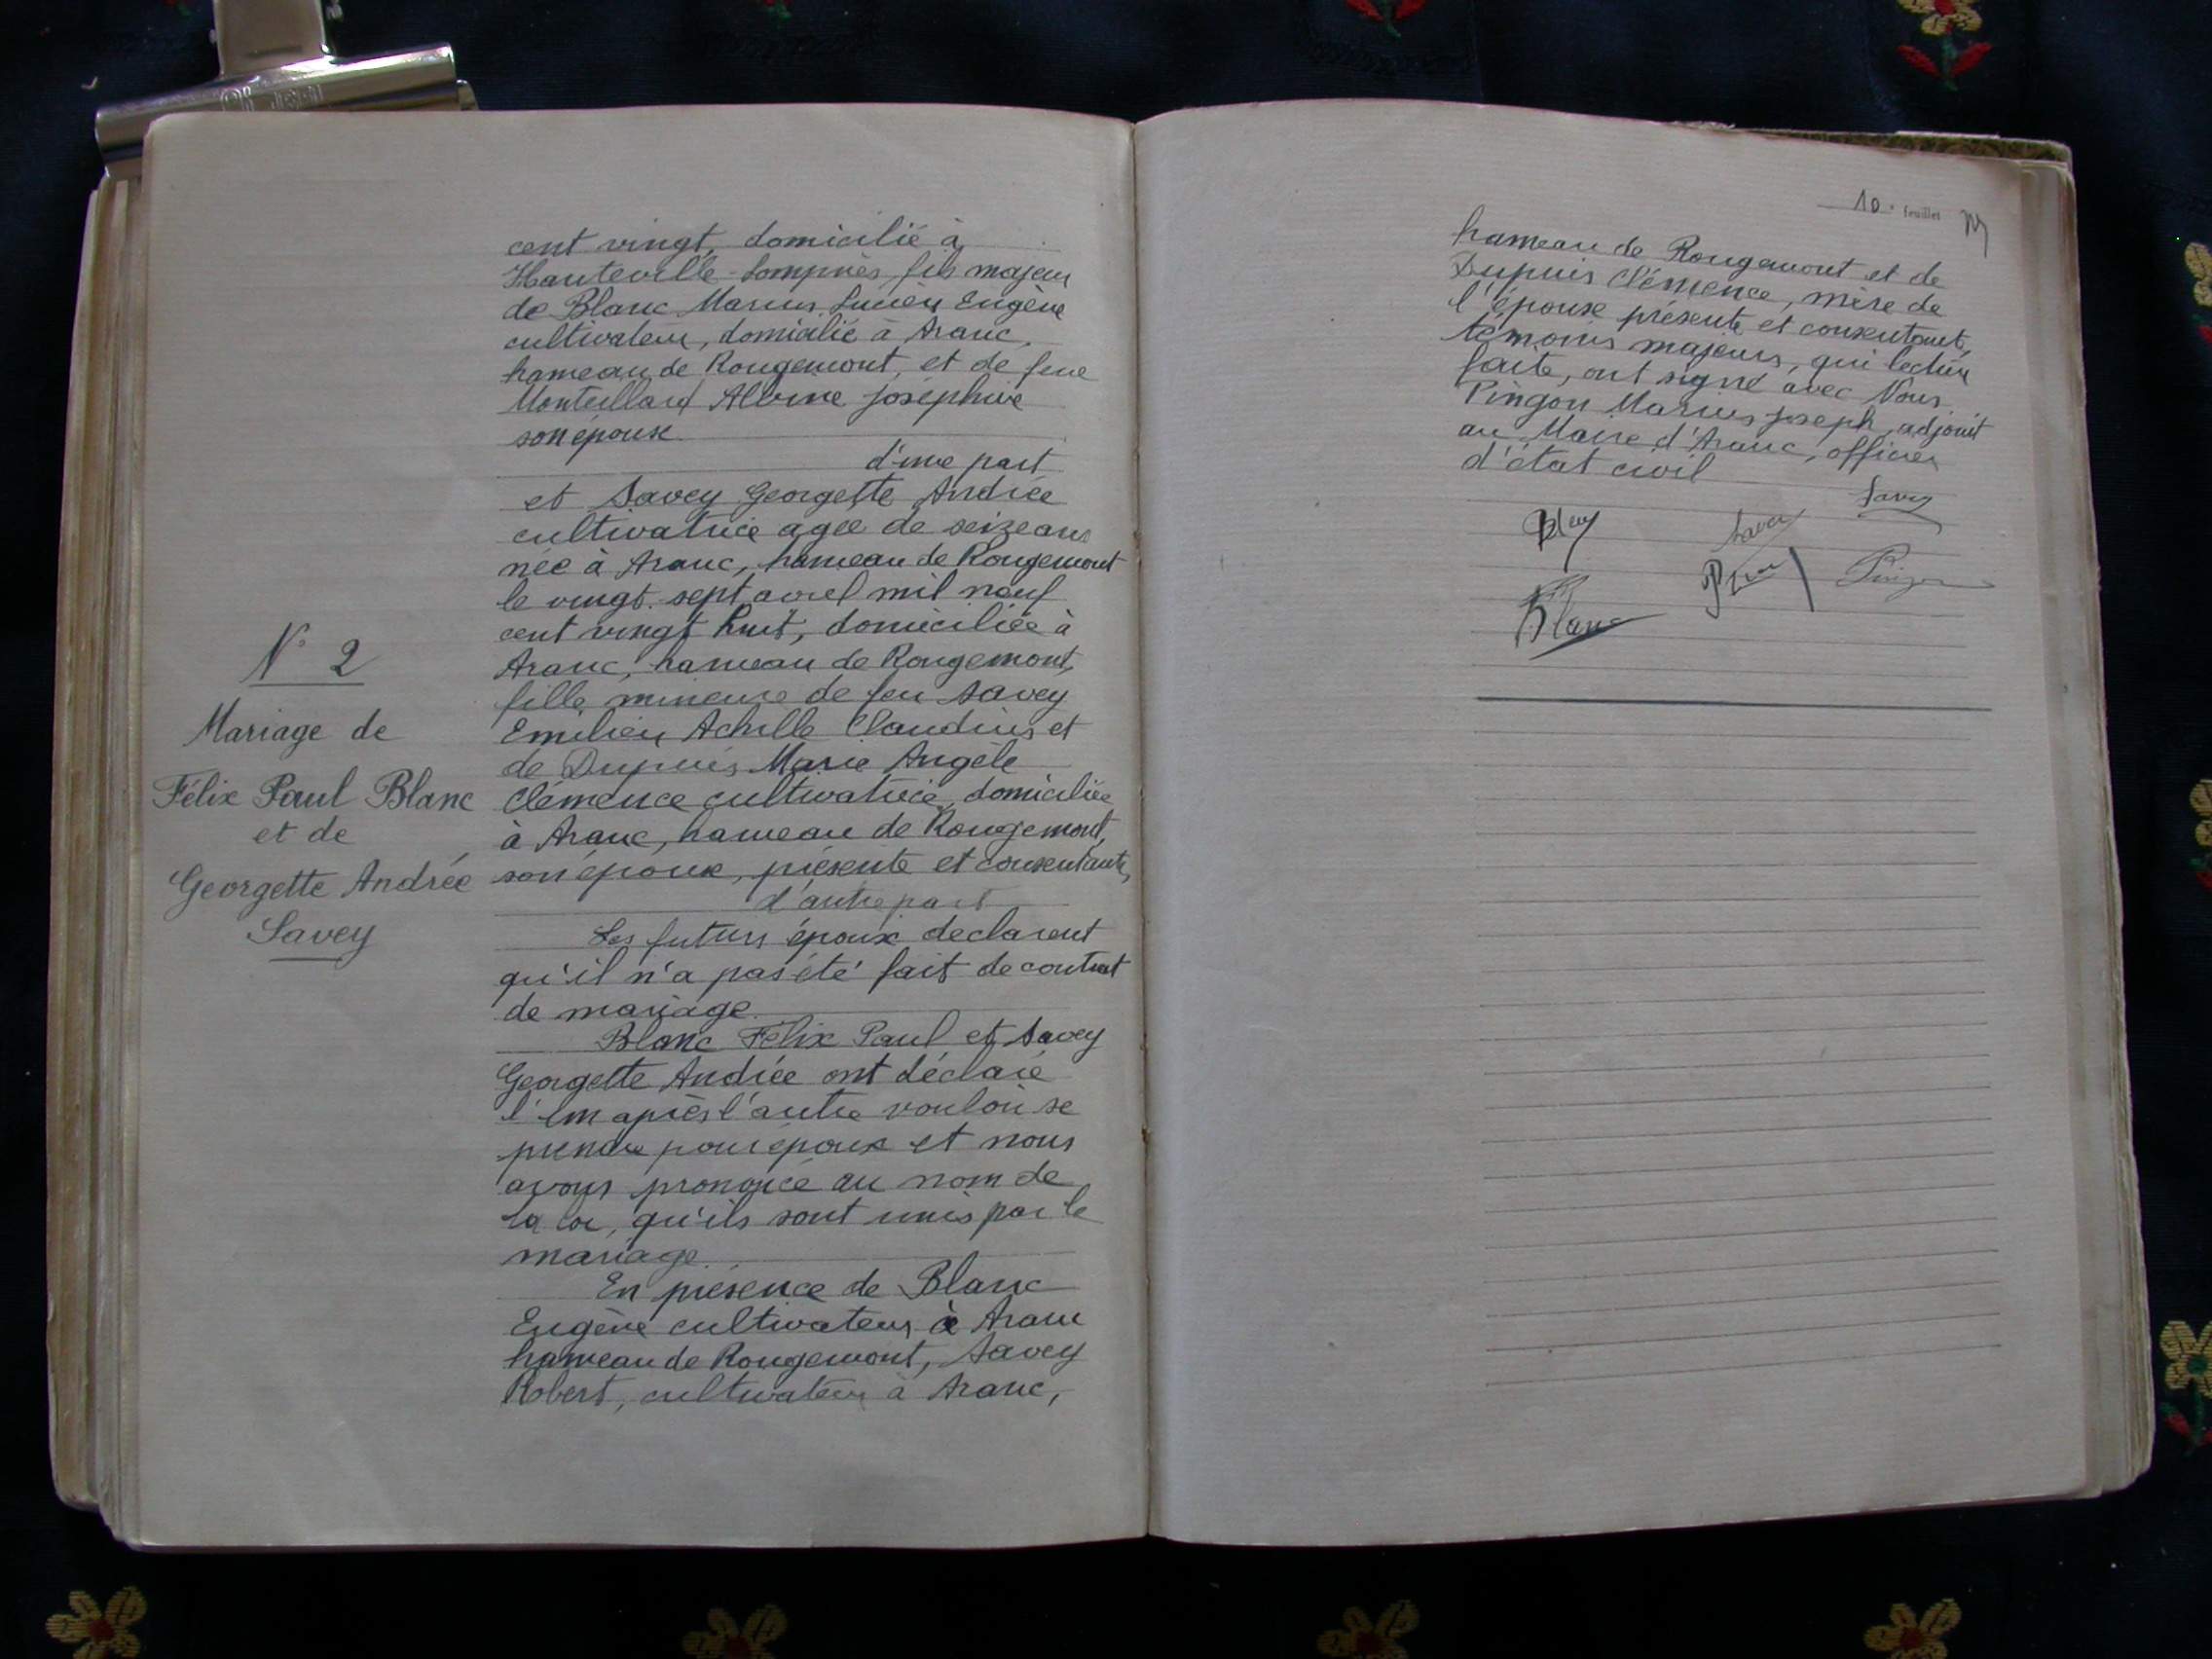 N° 2
Mariage de
Félix Paul Blanc
et de
Georgette Andrée
Savey
cent vingt, domicilié à
Hauteville-Lompnès, fils majeur
de Blanc Marius Lucien Eugène
cultivateur, domicilié à Aranc,
hameau de Rougemont, et de feue
Monteillard Albine Joséphine
son épouse
d'une part
et Savey Georgette Andrée
cultivatrice agée de seize ans
née à Aranc, hameau de Rougemont
le vingt-sept avril mil neuf
cent vingt huit, domiciliée à
Aranc, hameau de Rougemont,
fille mineure de feu Savey
Emilien Achille Claudius et
de Dupuis Marie Angèle
Clémence cultivatrice, domiciliée
à Aranc, hameau de Rougemont,
son épouse, présente et consentante,
d'autre part
Les futurs époux declarent
qu'il n'a pas été fait de contrat
de mariage.
Blanc Félix Paul et Savey
Georgette Andrée ont déclaré
l'un après l'autre vouloir se
prendre pour époux et nous
avons prononcé au nom de
la loi, qu'ils sont unis par le
mariage.
En présence de Blanc
Eugène cultivateur à Aranc
hameau de Rougemont, Savey
Robert, cultivateur à Aranc,
10 feuillet
hameau de Rougemont et de
Dupuis Clémence, mère de
l'épouse présente et consentante,
témoins majeurs, qui lecture
faite, ont signé avec Nous
Pingon Marius Joseph, adjoint
au Maire d'Aranc, officier
d'état civil
Savey
Savey
Pingon
Blanc